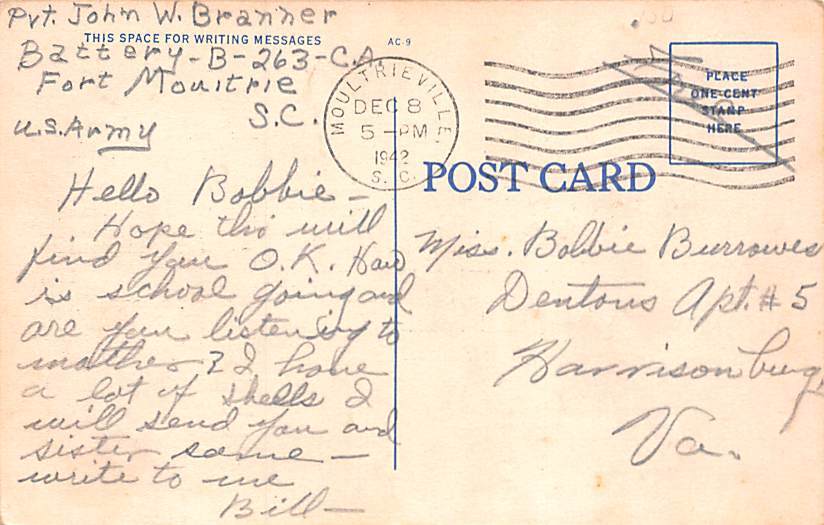 Pvt. John W. Branner
THIS SPACE FOR WRITING MESSAGES
AC-9
Battery-B-263-C.A.
Fort Moultrie
S.C.
U.S. Army
MOULTRIEVILLE,
DEC 8
5 - PM
1942
S. C.
Free
PLACE
ONE-CENT
STAMP
HERE
POST CARD
Hello Bobbie -
Hope this will
find you O.K. How
is school going and
are you listening to
mother? I have
a lot of shells I
will send you and
sister some -
write to me
Bill -
Miss. Bobbie Burrowes
Dentons Apt. # 5
Harrisonburg
Va.